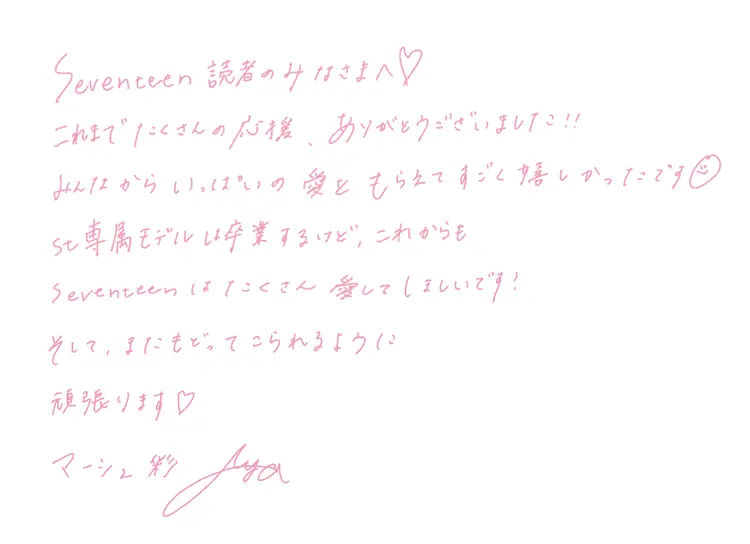 Seventeen 読者のみなさまへ♡
これまでたくさんの応援、ありがとうございました!!
みんなからいっぱいの愛をもらえてすごく嬉しかったです☺
st専属モデルは卒業するけど、これからも
Seventeenはたくさん愛してほしいです!
そして、またもどってこられるように
頑張ります♡
マーシュ 彩 Aya